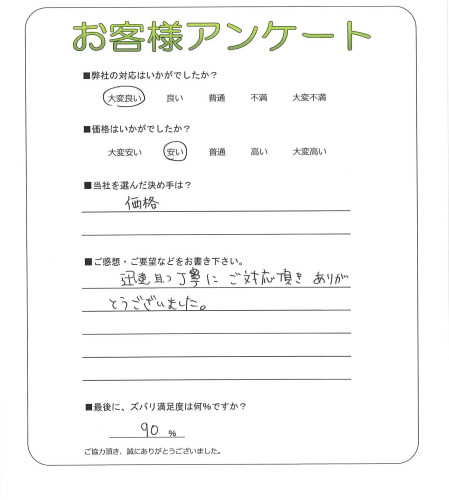 お客様アンケート
■弊社の対応はいかがでしたか？
大変良い 良い 普通 不満 大変不満
■価格はいかがでしたか？
大変安い 安い 普通 高い 大変高い
■当社を選んだ決め手は？
価格
■ご感想・ご要望などをお書き下さい。
迅速且つ丁寧にご対応頂きありが
とうございました。
■最後に、ズバリ満足度は何％ですか？
90 ％
ご協力頂き、誠にありがとうございました。